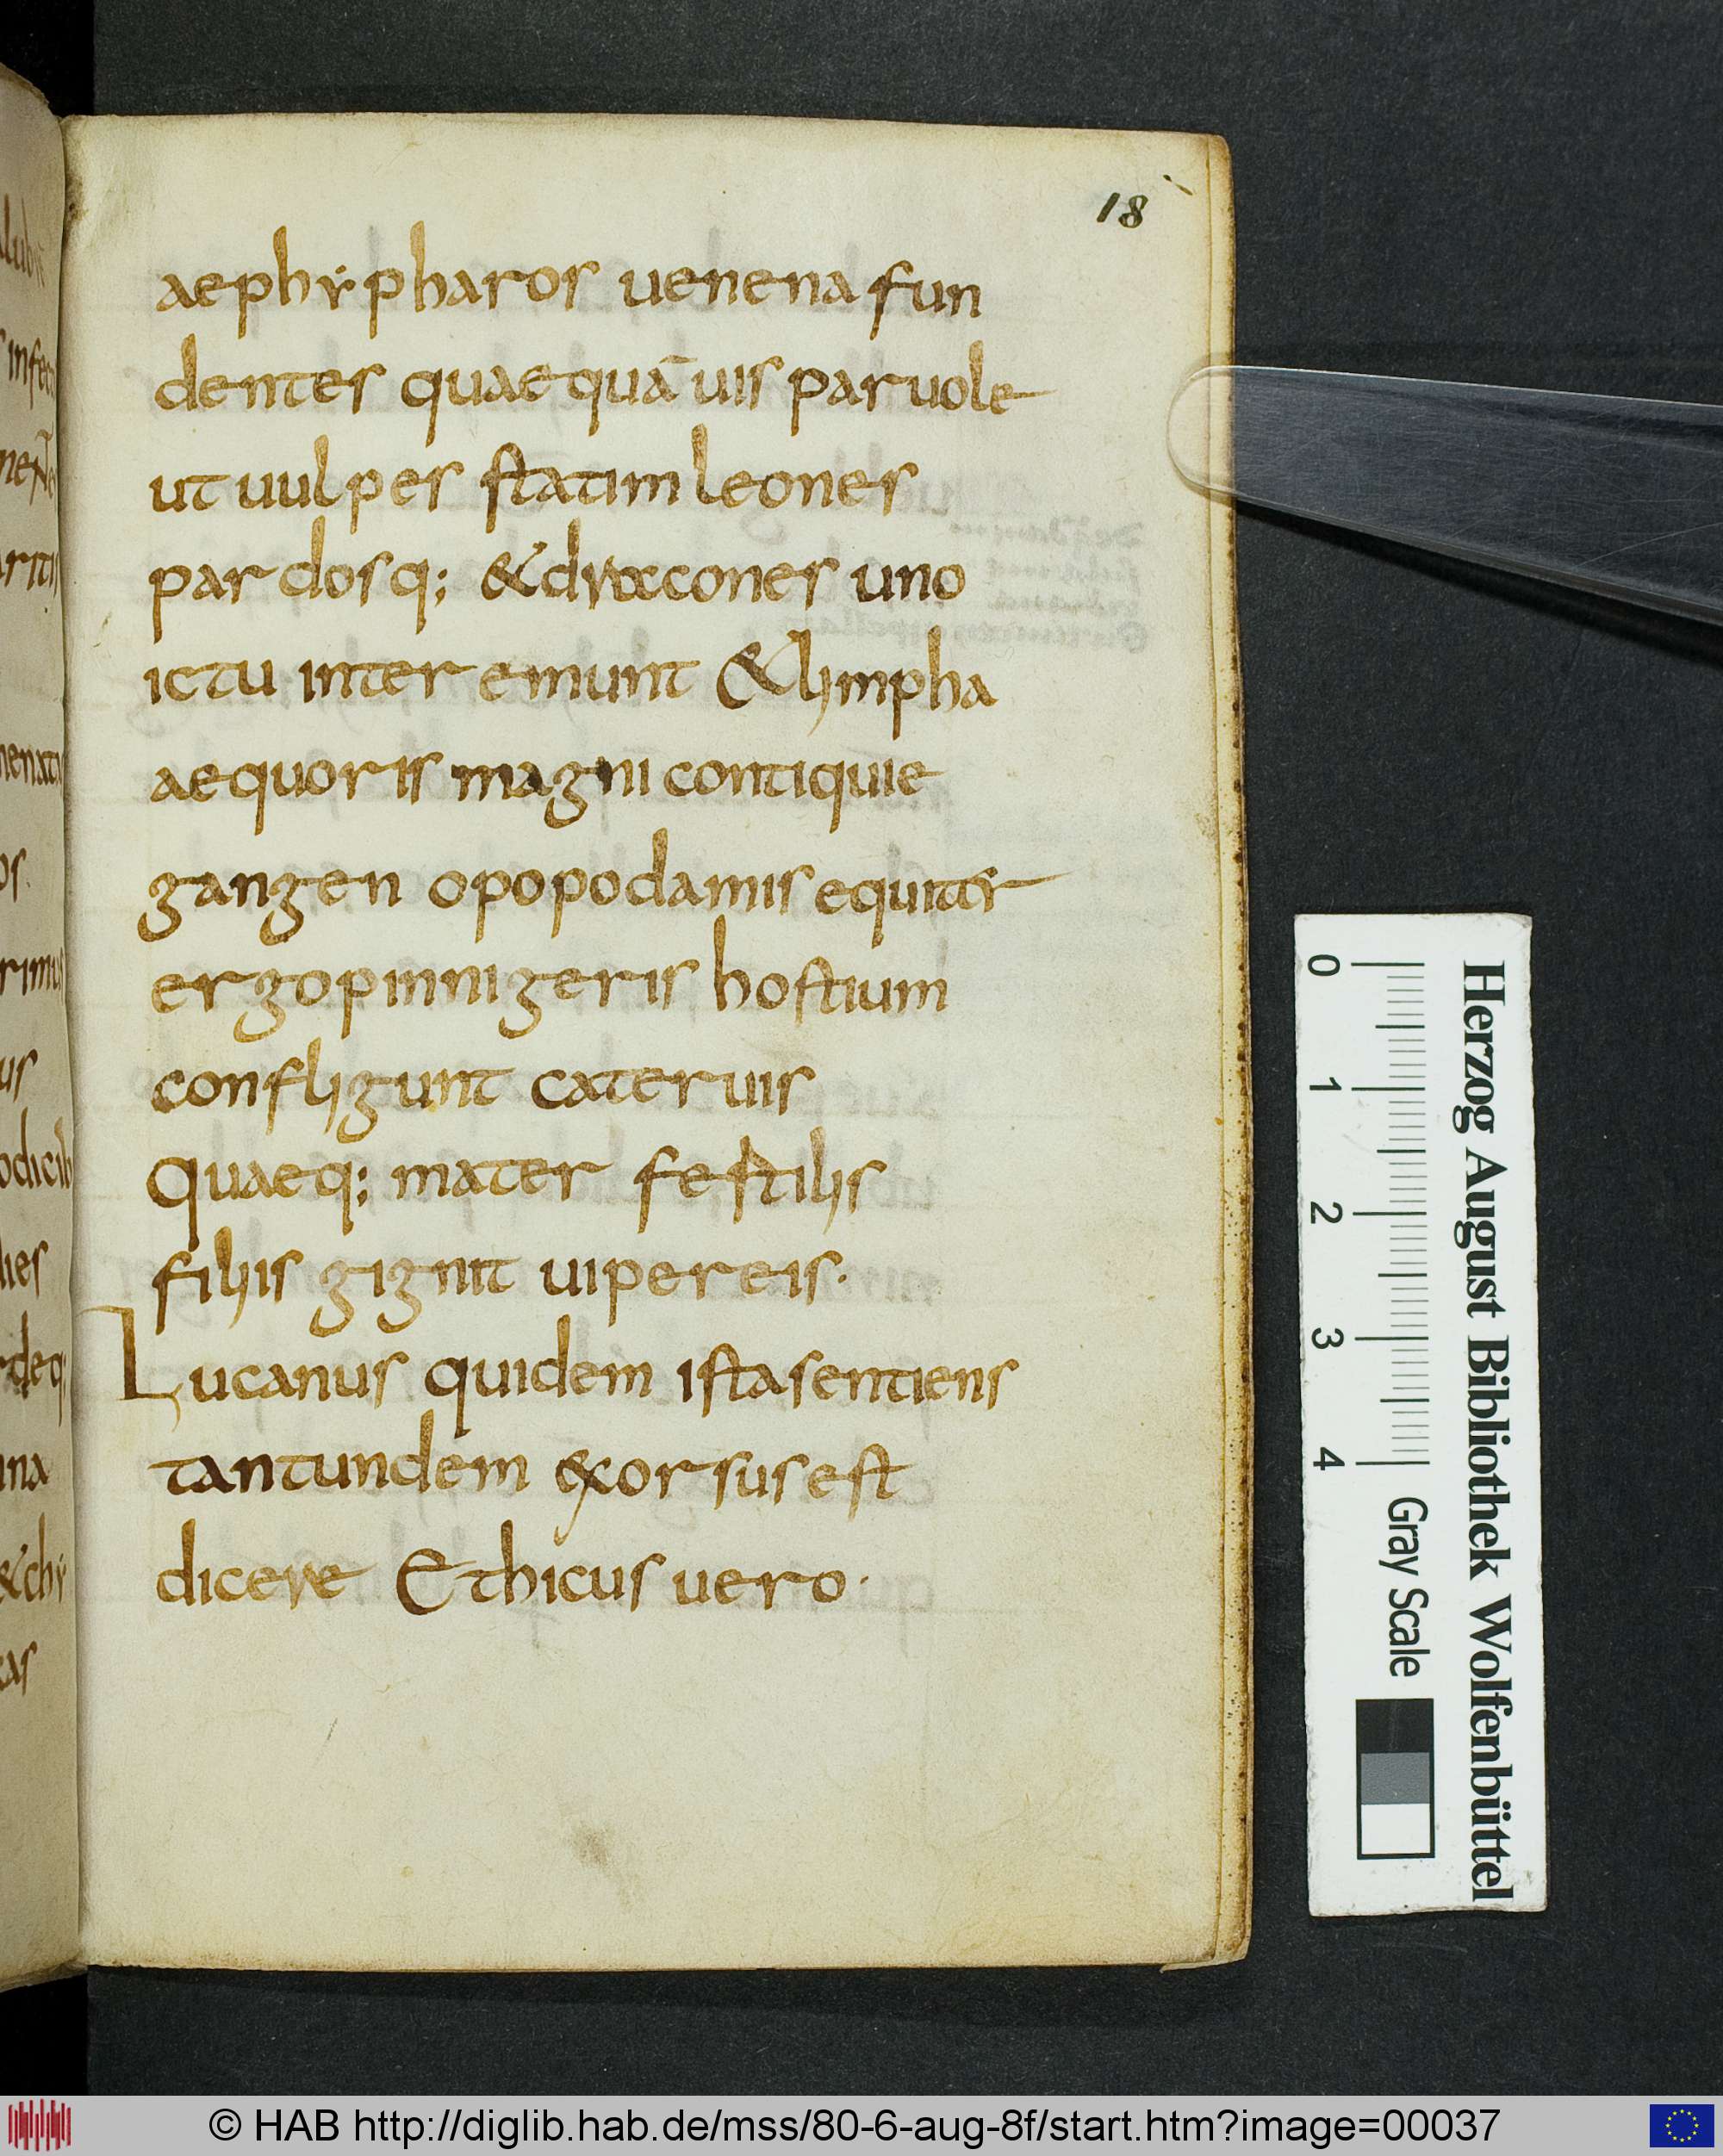 18
aephẏpharos uenena fun
dentes quaequā uis paruole
ut uulpes statim leones
pardosq; & dracones uno
ictu inter emunt & limpha
aequoris magni contiquie
gangen opopodamis equitat
ergo pinnigeris hostium
confligunt cateruis
Quaeq; mater festilis
filiis gignit uipereis·
Lucanus quidem ista sentiens
tantundem exorsus est
dicere Ethicus uero·
Herzog August Bibliothek Wolfenbüttel
0 1 2 3 4 Gray Scale
© HAB http://diglib.hab.de/mss/80-6-aug-8f/start.htm?image=00037